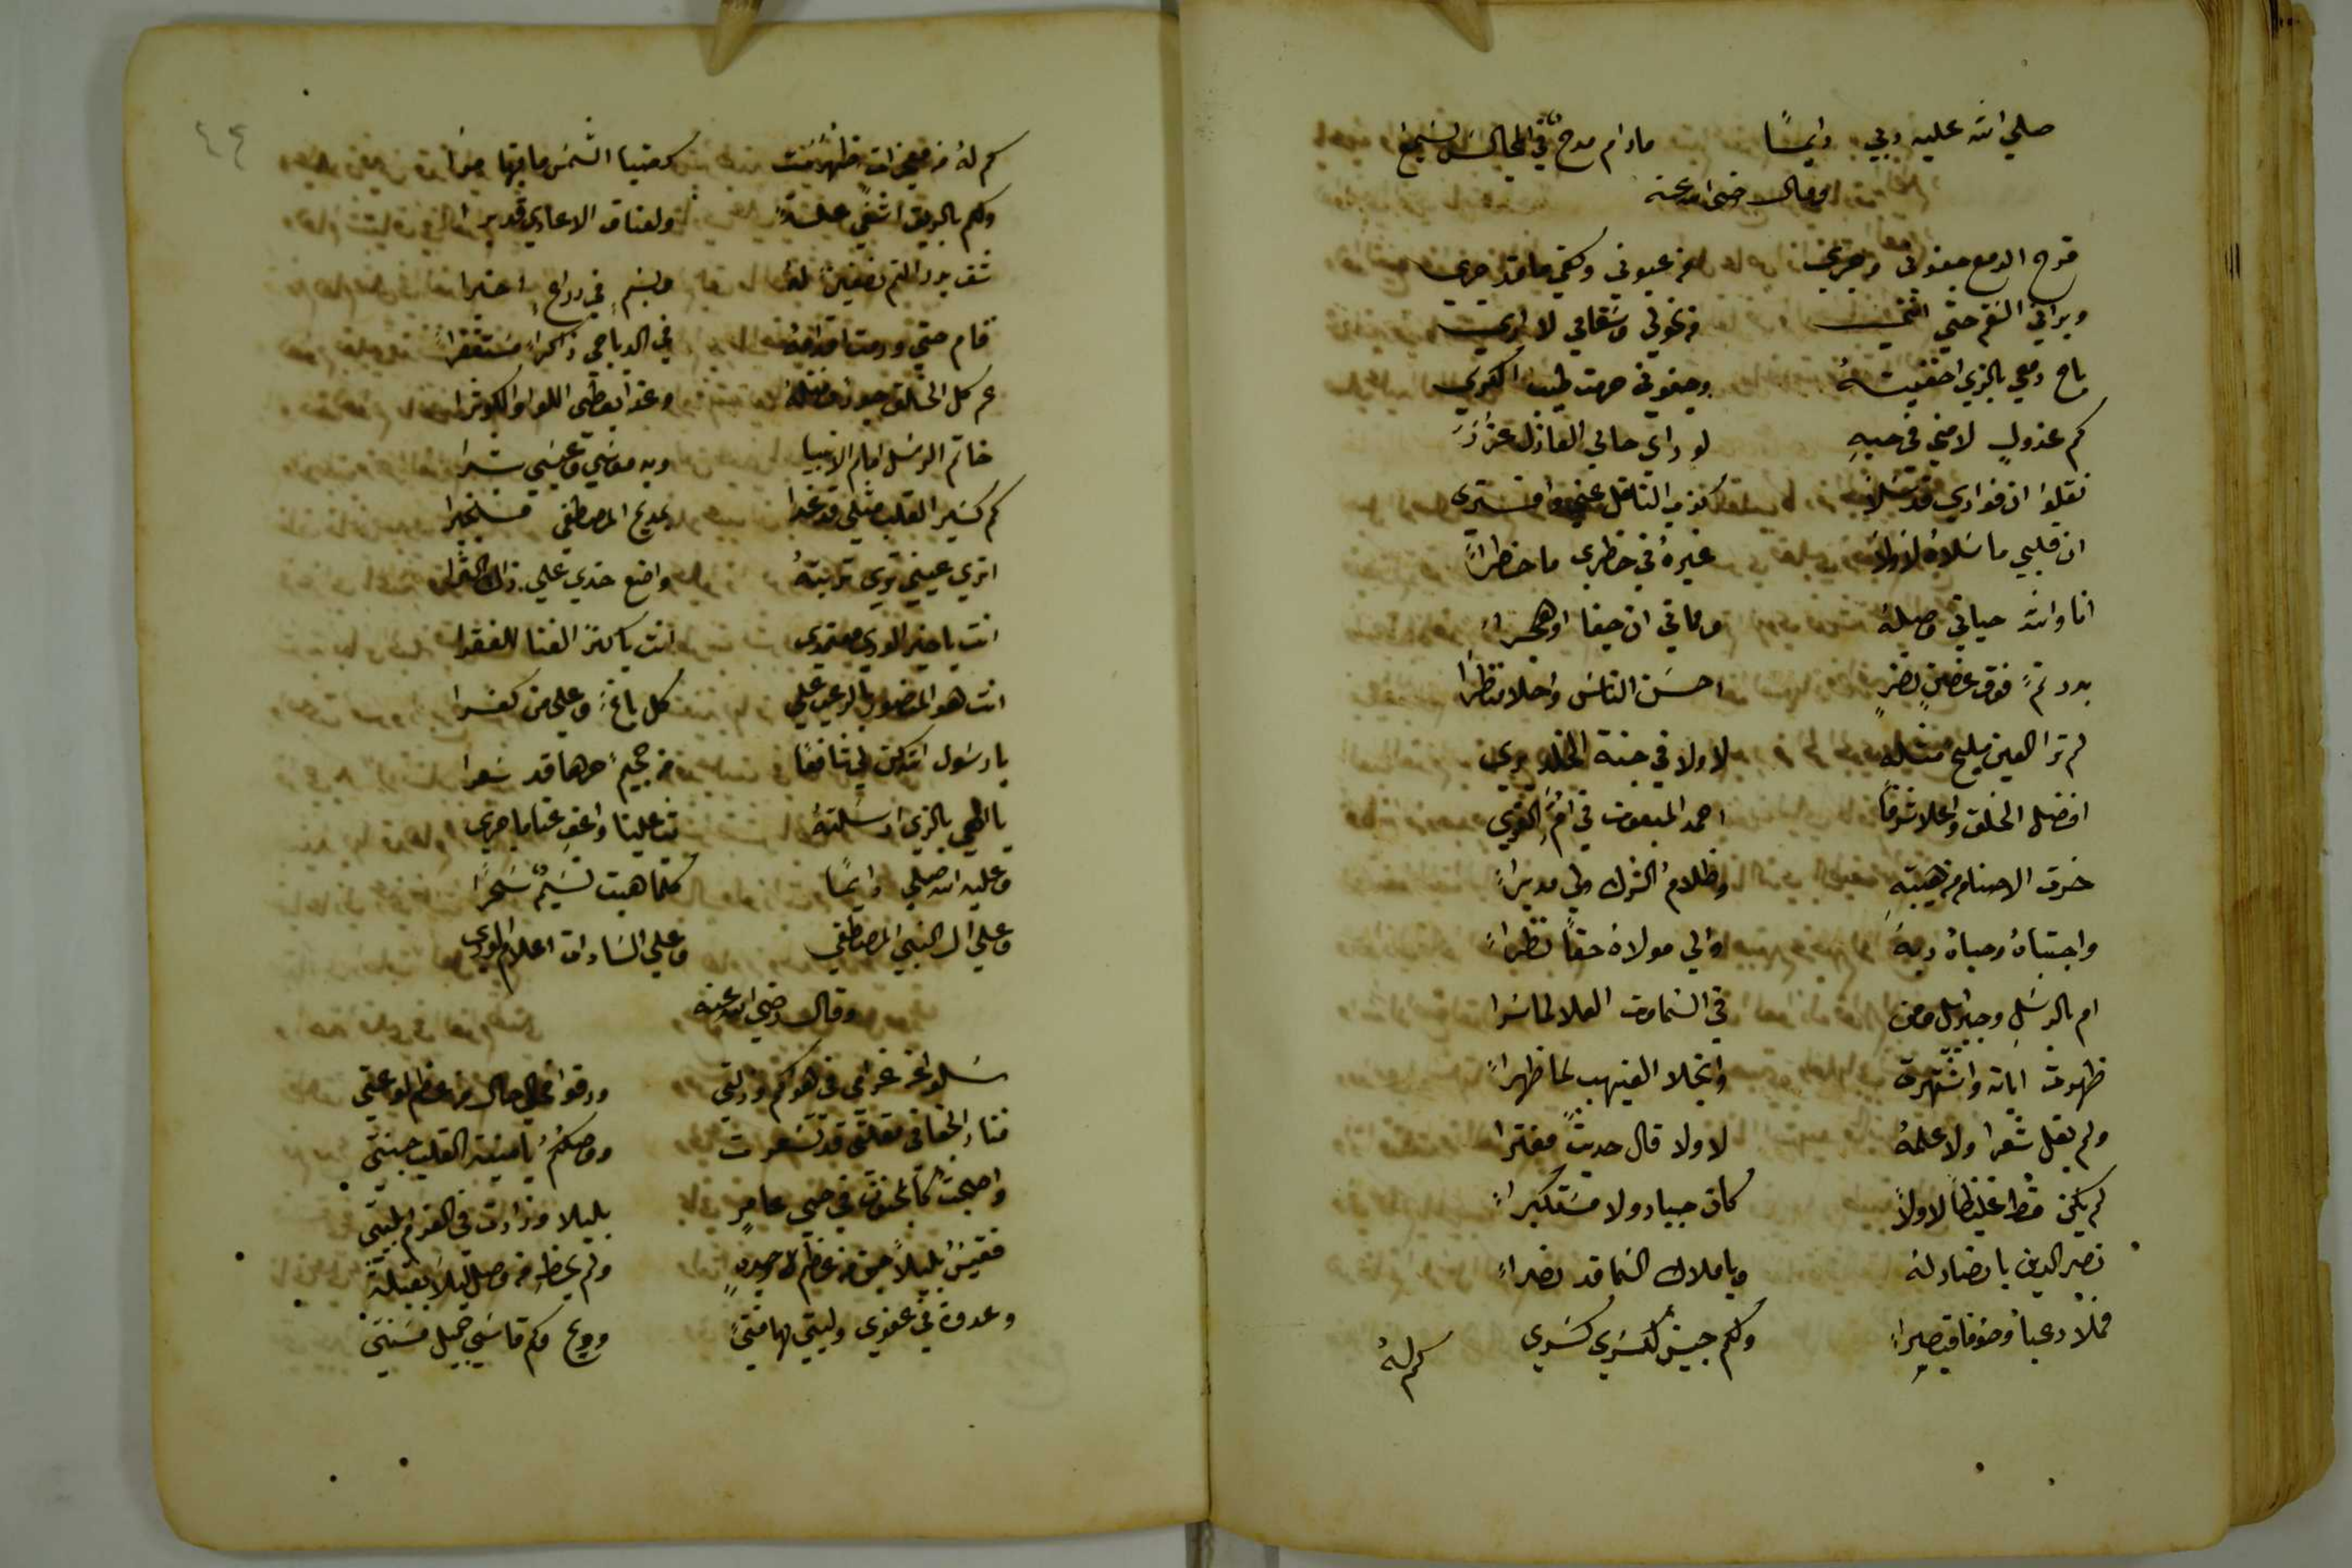 صلي الله عليه ربي دايمًا مادام مدح في المجالس يسمع
وقال رضي الله عنه
قرح الدمع جفوني وجري من عيوني وكفي ما قد جري
وبراني السقم حتي انني من نحولي وسقامي لا اري
باح دمعي بالذي اخفيته وجفوني حرمت طيب الكري
كم عذول لامني في حبهِ لو راي حالي العاذل عذر
نقلوا ان فوادي قد سلا كذب الناقل عني وافتري
ان قلبي ما سلاه لا ولا غيره في خاطري ما خطرا
انا والله حياتي وصله ومماتي ان جفا او هجرا
بدر تم فوق غصن نضر احسن الناس واحلا منظرا
لم ترا العين مليح مثله لا ولا في جنة الخلد يري
افضل الخلق واعلا شرفا احمد المبعوث في ام القري
خرت الاصنام من هيبتهِ وظلام الشرك ولي مدبرا
واجتباه وحباه ربه والي مولاه حقا نظرا
ام بالرسل وجبرايل ومن في السماوات العلا لما سرا
ظهرت اياته واشتهرت وانجلا الغيهب لما ظهرا
ولم يقل شعرا ولا علمه لا ولا قال حديث مفترا
لم يكن فظا غليظا لا ولا كان جبار ولا مستكبرا
نصر الدين بانصار له وباملاك السما قد نصرا
فملا رعبا وخوفا قيصرا ولكم جيش لكسري كسري
كم له
٤٤
كم له من معجزات ظهرت كضيا الشمس ما فيها مرا
وكم بالريق اشفي علة ولعناق الاعادي قد برا
شق بدر التم نصفين له وبسم في ذراع اخبرا
قام حتي ورمت اقدامه في الدياجي ذاكرا مستغفرا
عم كل الخلق جودا فضله وغدا يعطي اللوا والكوثرا
خاتم الرسل امام الانبيا وبه موسي وعيسي بشرا
كم كسير القلب مثلي قد غدا بمديح المصطفي منجبرا
اتري عيني تري تربته واضع خدي علي ذاك الثرا
انت يا خير الوري معتمدي انت يا كنز الغنا للفقرا
انت هو المنصور بالرعب علي كل باغ وعلي من كفرا
يا رسول الله كن لي شافعًا من جحيم حرها قد سعرا
يا الهي بالذي ارسلته تب علينا واعف عنا ما جري
وعليه الله صلي دايمًا كلما هبت نسيم سحرا
وعلي ال النبي المصطفي وعلي السادات اعلام الوري
وقال رضي الله عنه
سلوا عن غرامي في هواكم وذلتي ورقوا لحالي من عظم لوعتي
فنار الجفا في مهجتي قد تسعرت ووصلكم يا منية القلب جنتي
واصبحت كالمجنون في حي عامر بليلا وزادت في الغرام بليتي
فقيس بليلا جن من عظم وجده ولم يحظ من وصل ليلا بقبلة
وعروة في عفري وليتي بها فتي وويح وكم قاسي جميل